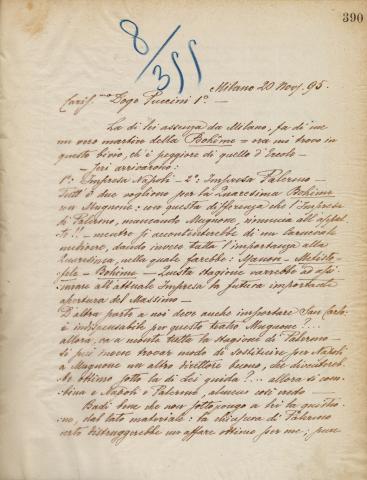 390
8/355
Milano 20 Nov. 95.
Cariss.mo Doge Puccini 1º. —
La di lei assenza da Milano, fa di me
un vero martire della Bohème = ora mi trovo in
questo bivio, ch'è peggiore di quello d'Ercole —
Jeri arrivarono:
1ª. Impresa Napoli - 2ª. Impresa Palermo —
Tutt'e due vogliono per la Quaresima Bohème
con Mugnone: con questa differenza che l'Impresa
di Palermo, mancando Mugnone, rinuncia all'appal-
to!! — mentre si accontenterebbe di un carnevale
mediocre, dando invece tutta l'importanza alla
Quaresima, nella quale farebbe: Manon - Mefisto-
fele - Bohème — Questa stagione varrebbe ad assi-
curare all'attuale Impresa la futura importante
apertura del Massimo —
D'altra parte a noi deve anche importare San Carlo:
è indispensabile per questo teatro Mugnone?...
allora, va a monte tutta la stagione di Palermo —
si può invece trovar modo di sostituire per Napoli
a Mugnone un altro direttore buono, che diverrereb-
be ottimo sotto la di Lei guida?... allora si com-
bina e Napoli e Palermo, almeno così credo —
Badi bene che non sottopongo a Lei la questio-
ne, dal lato materiale: la chiusura di Palermo
certo distruggerebbe un affare ottimo per me; pure